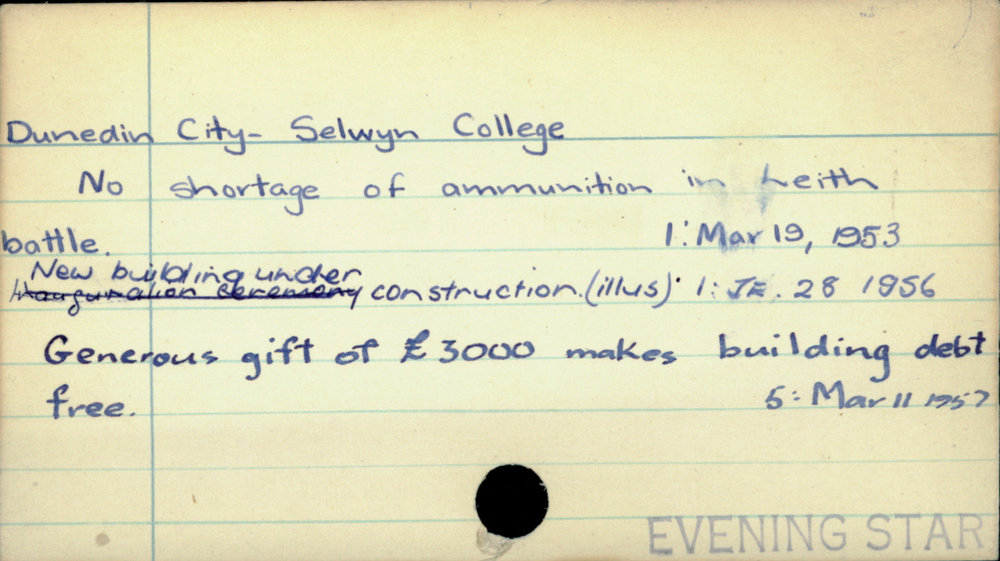 Dunedin City- Selwyn College
No shortage of ammunition in Leith
battle. 1: Mar 19, 1953
New building under
Inauguration ceremony construction. (illus) 1: JE. 28 1956
Generous gift of £3000 makes building debt
free. 5: Mar 11 1957
EVENING STAR